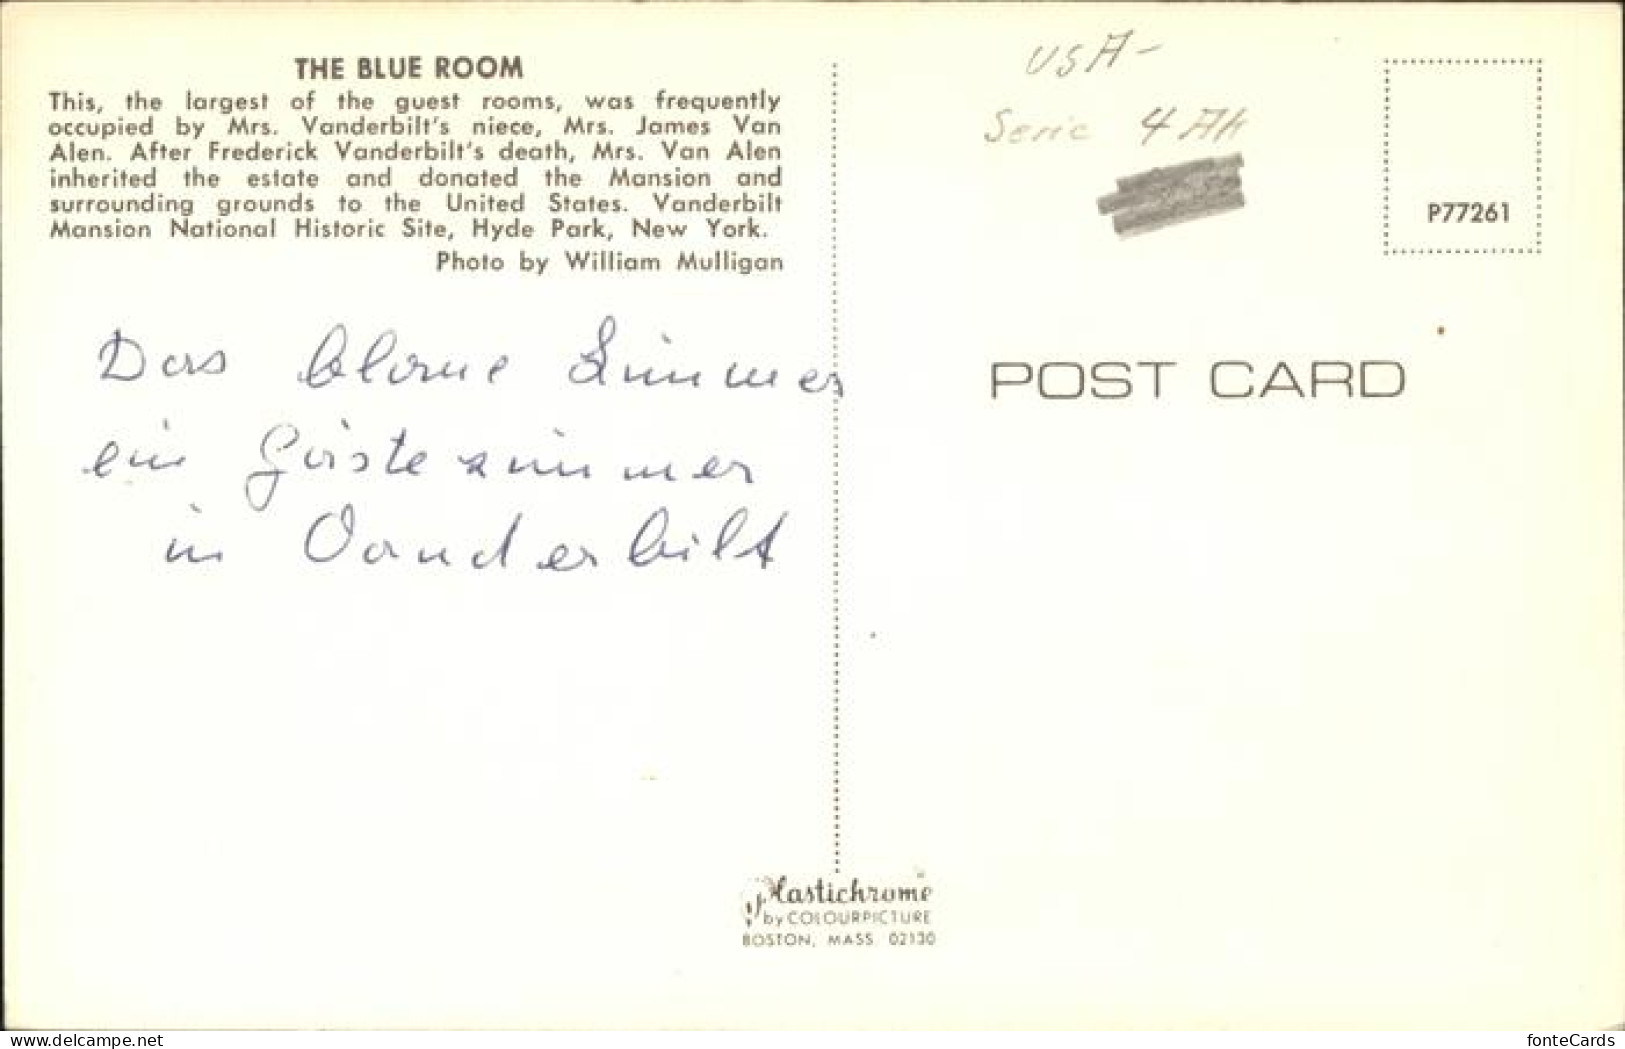 THE BLUE ROOM
This, the largest of the guest rooms, was frequently
occupied by Mrs. Vanderbilt's niece, Mrs. James Van
Alen. After Frederick Vanderbilt's death, Mrs. Van Alen
inherited the estate and donated the Mansion and
surrounding grounds to the United States. Vanderbilt
Mansion National Historic Site, Hyde Park, New York.
Photo by William Mulligan
Das blaue Zimmer
ein Gästezimmer
in Vanderbilt
USA-
Serie 4
P77261
POST CARD
Plastichrome
by COLOURPICTURE
BOSTON, MASS 02130
www.delcampe.net
fonteCards